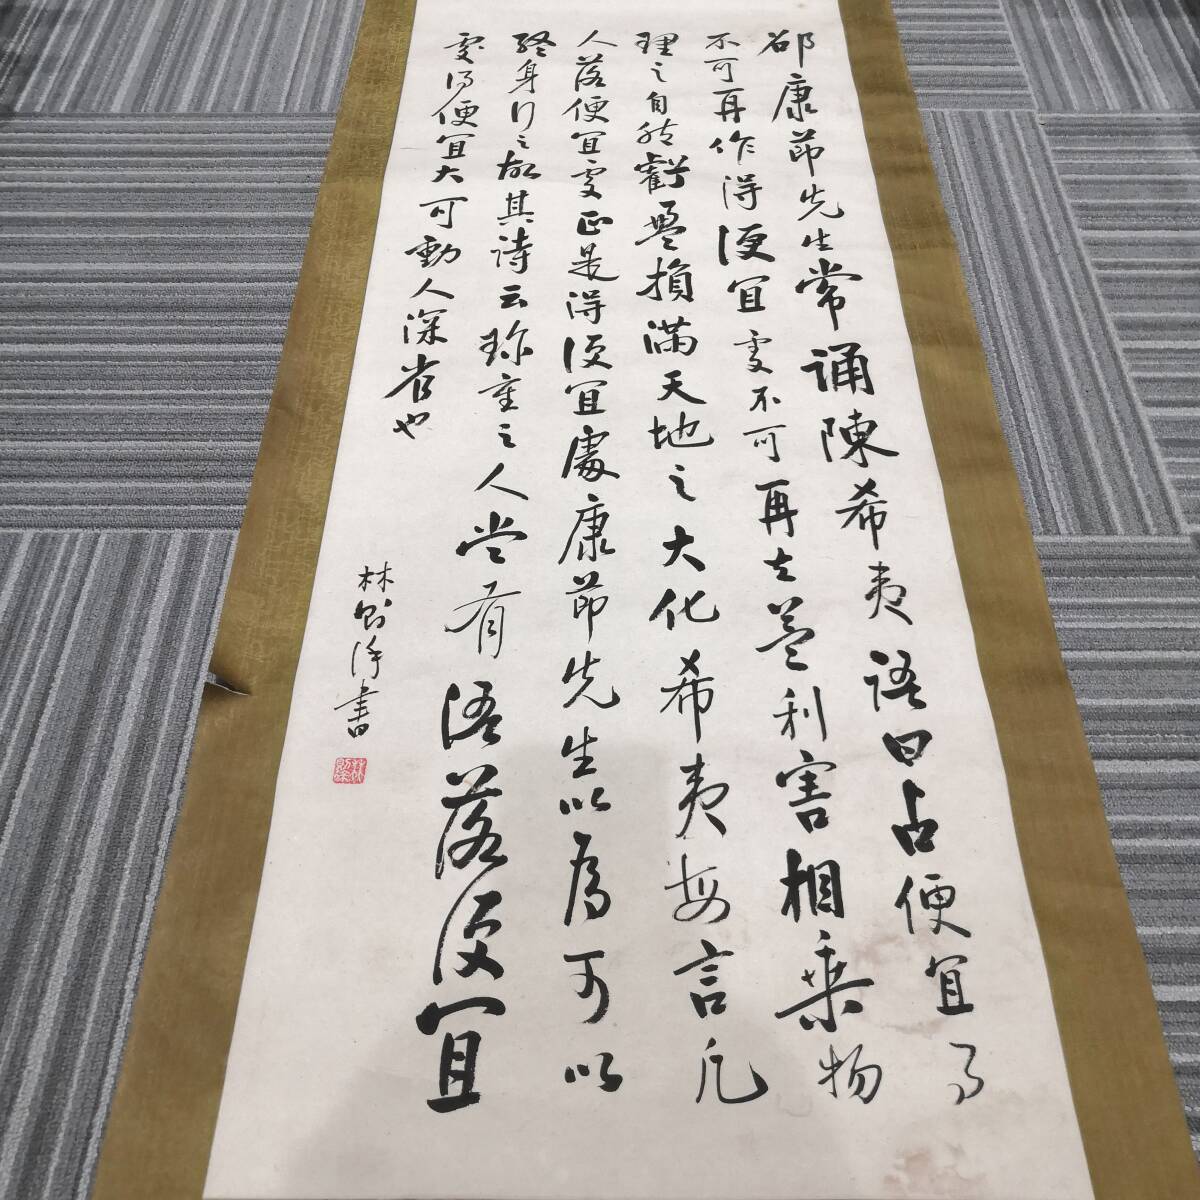 邵康節先生常誦陳希夷語曰占便宜事
不可再作得便宜處不可再去蓋利害相乘物
理之自然虧盈損滿天地之大化希夷每言凡
人落便宜處正是得便宜處康節先生以為可以
終身行之故其詩云珍重之人嘗有語落便宜
處得便宜大可動人深省也
林 書